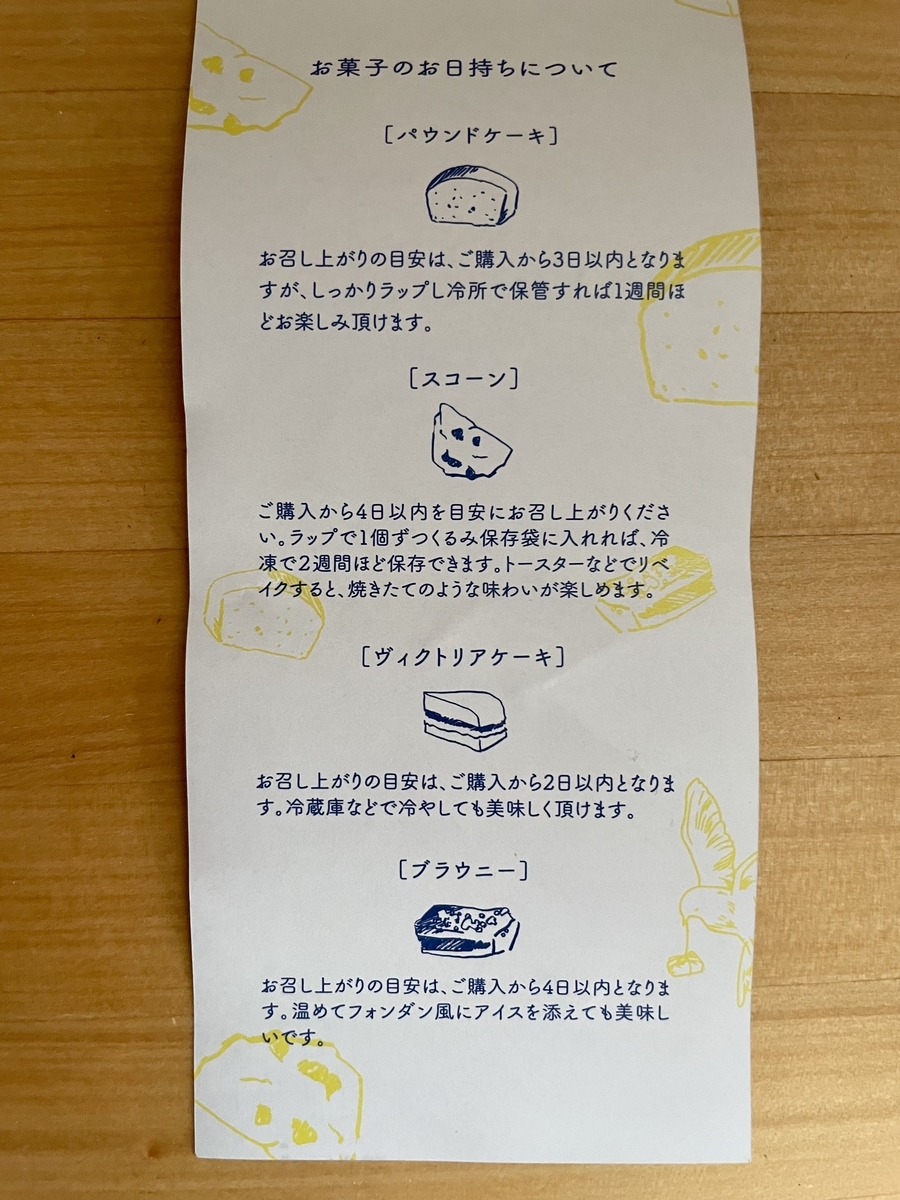 お菓子のお日持ちについて
［パウンドケーキ］
お召し上がりの目安は、ご購入から3日以内となりま
すが、しっかりラップし冷所で保管すれば1週間ほ
どお楽しみ頂けます。
［スコーン］
ご購入から4日以内を目安にお召し上がりくださ
い。ラップで1個ずつくるみ保存袋に入れれば、冷
凍で2週間ほど保存できます。トースターなどでリベ
イクすると、焼きたてのような味わいが楽しめます。
［ヴィクトリアケーキ］
お召し上がりの目安は、ご購入から2日以内となりま
す。冷蔵庫などで冷やしても美味しく頂けます。
［ブラウニー］
お召し上がりの目安は、ご購入から4日以内となりま
す。温めてフォンダン風にアイスを添えても美味し
いです。